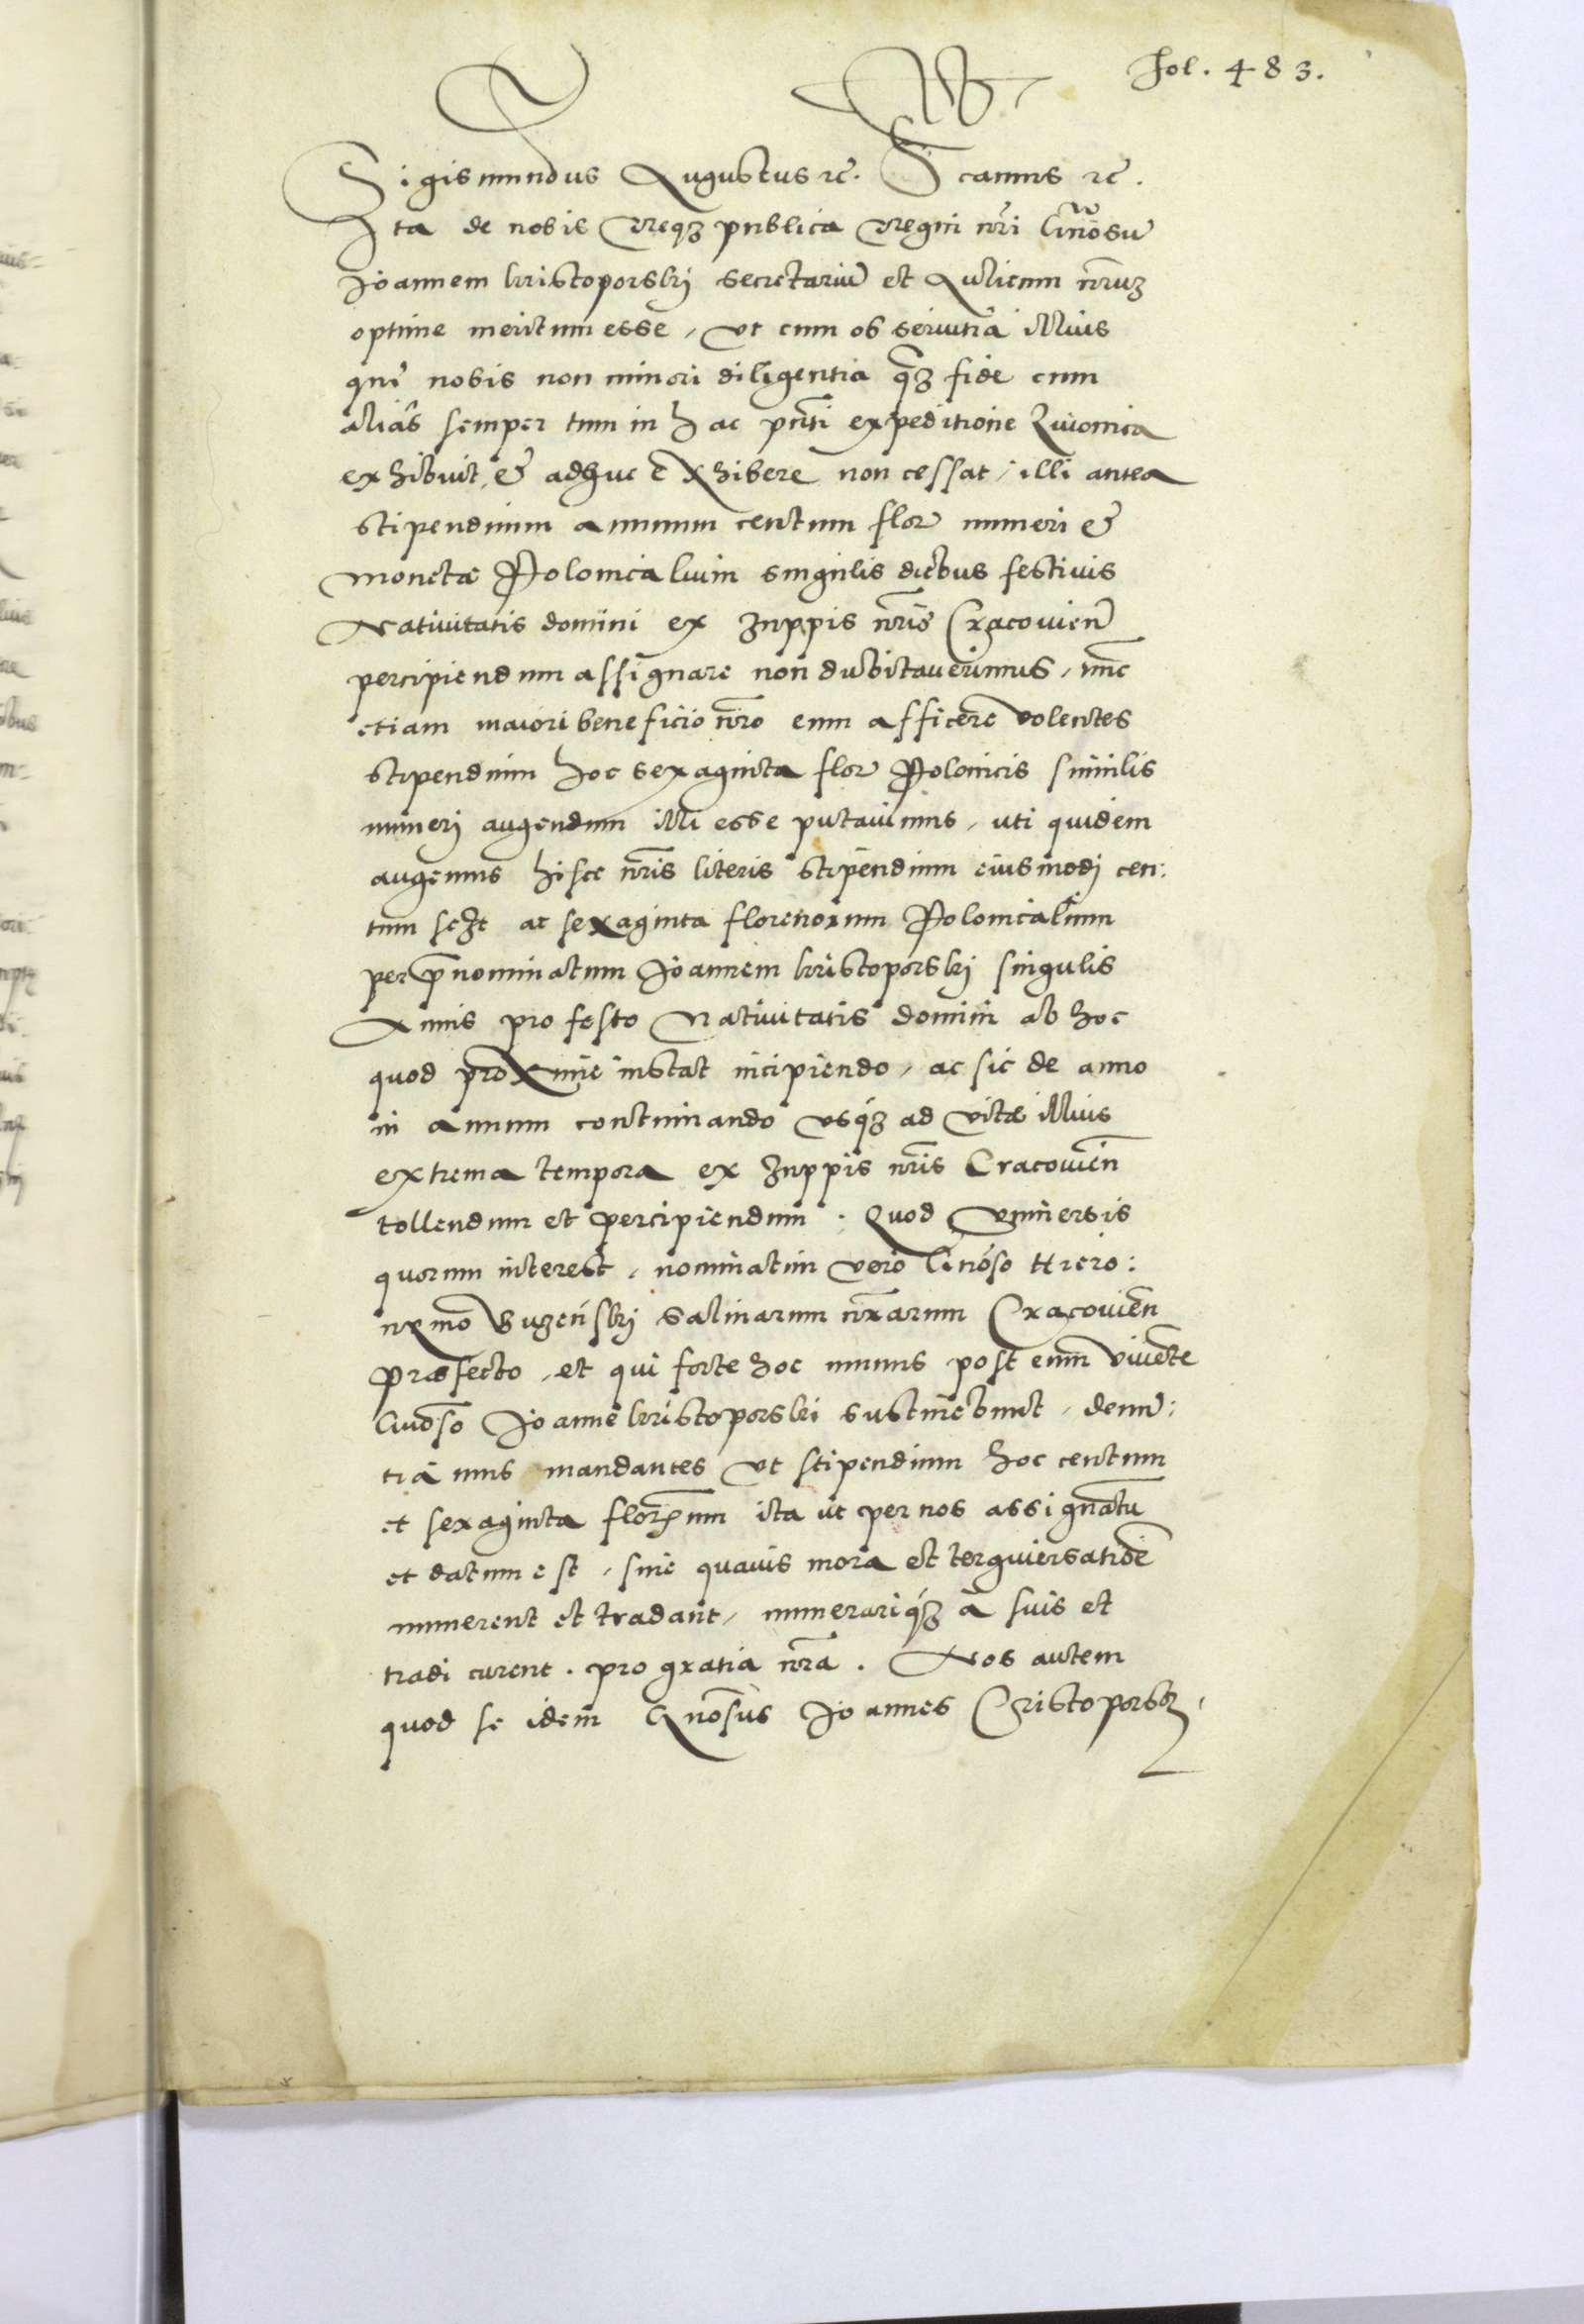 fol. 483.
Sigismundus Augustus rc. Scanus rc.
Ita de nobis Reqz publica Regni nri Gnosu
Joannem kristoporskj secretariu et Aulicum nrumz
optime meritum esse, ut cum ob seruitia illius
que nobis non minori diligentia qz fide cum
alias semper tum in hac pnti expeditione Liuonica
exhibuit, & adhuc exhibere non cessat, illi antea
stipendium annuum centum flor numeri &
monetæ Polonicalium singulis diebus festiuis
Natiuitatis domini ex zuppis nris Cracouien
percipiendum assignare non dubitauerimus, nunc
etiam maiori beneficio nro eum afficere volentes
stipendium hoc sexaginta flor Polonicis similis
numerj augendum illi esse putauimus, uti quidem
augemus hisce nris literis stipendium eiusmodj cen:
tum sczt ac sexaginta florenorum Polonicalium
per pnominatum Joannem kristoporskj singulis
Annis pro festo Natiuitatis domini ab hoc
quod proxime instat incipiendo, ac sic de anno
in annum continuando usqz ad vitæ illius
extrema tempora ex zuppis nris Cracouien
tollendum et percipiendum. Quod Vniuersis
quorum interest, nominatim vero Gnoso Hiero:
nymo Buzenskj salinarum nrarum Cracouien
Præfecto, et qui forte hoc munus post eum viuente
Gnoso Joanne kristoporski sustinebunt, denun:
tiamus mandantes ut stipendium hoc centum
et sexaginta florenum ita ut per nos assignatu
et datum est, sine quauis mora et terguiersatioe
numerent et tradant, numerariqz à suis et
tradi curent. pro gratia nra. Nos autem
quod se idem Gnosus Joannes Cristoporskj,